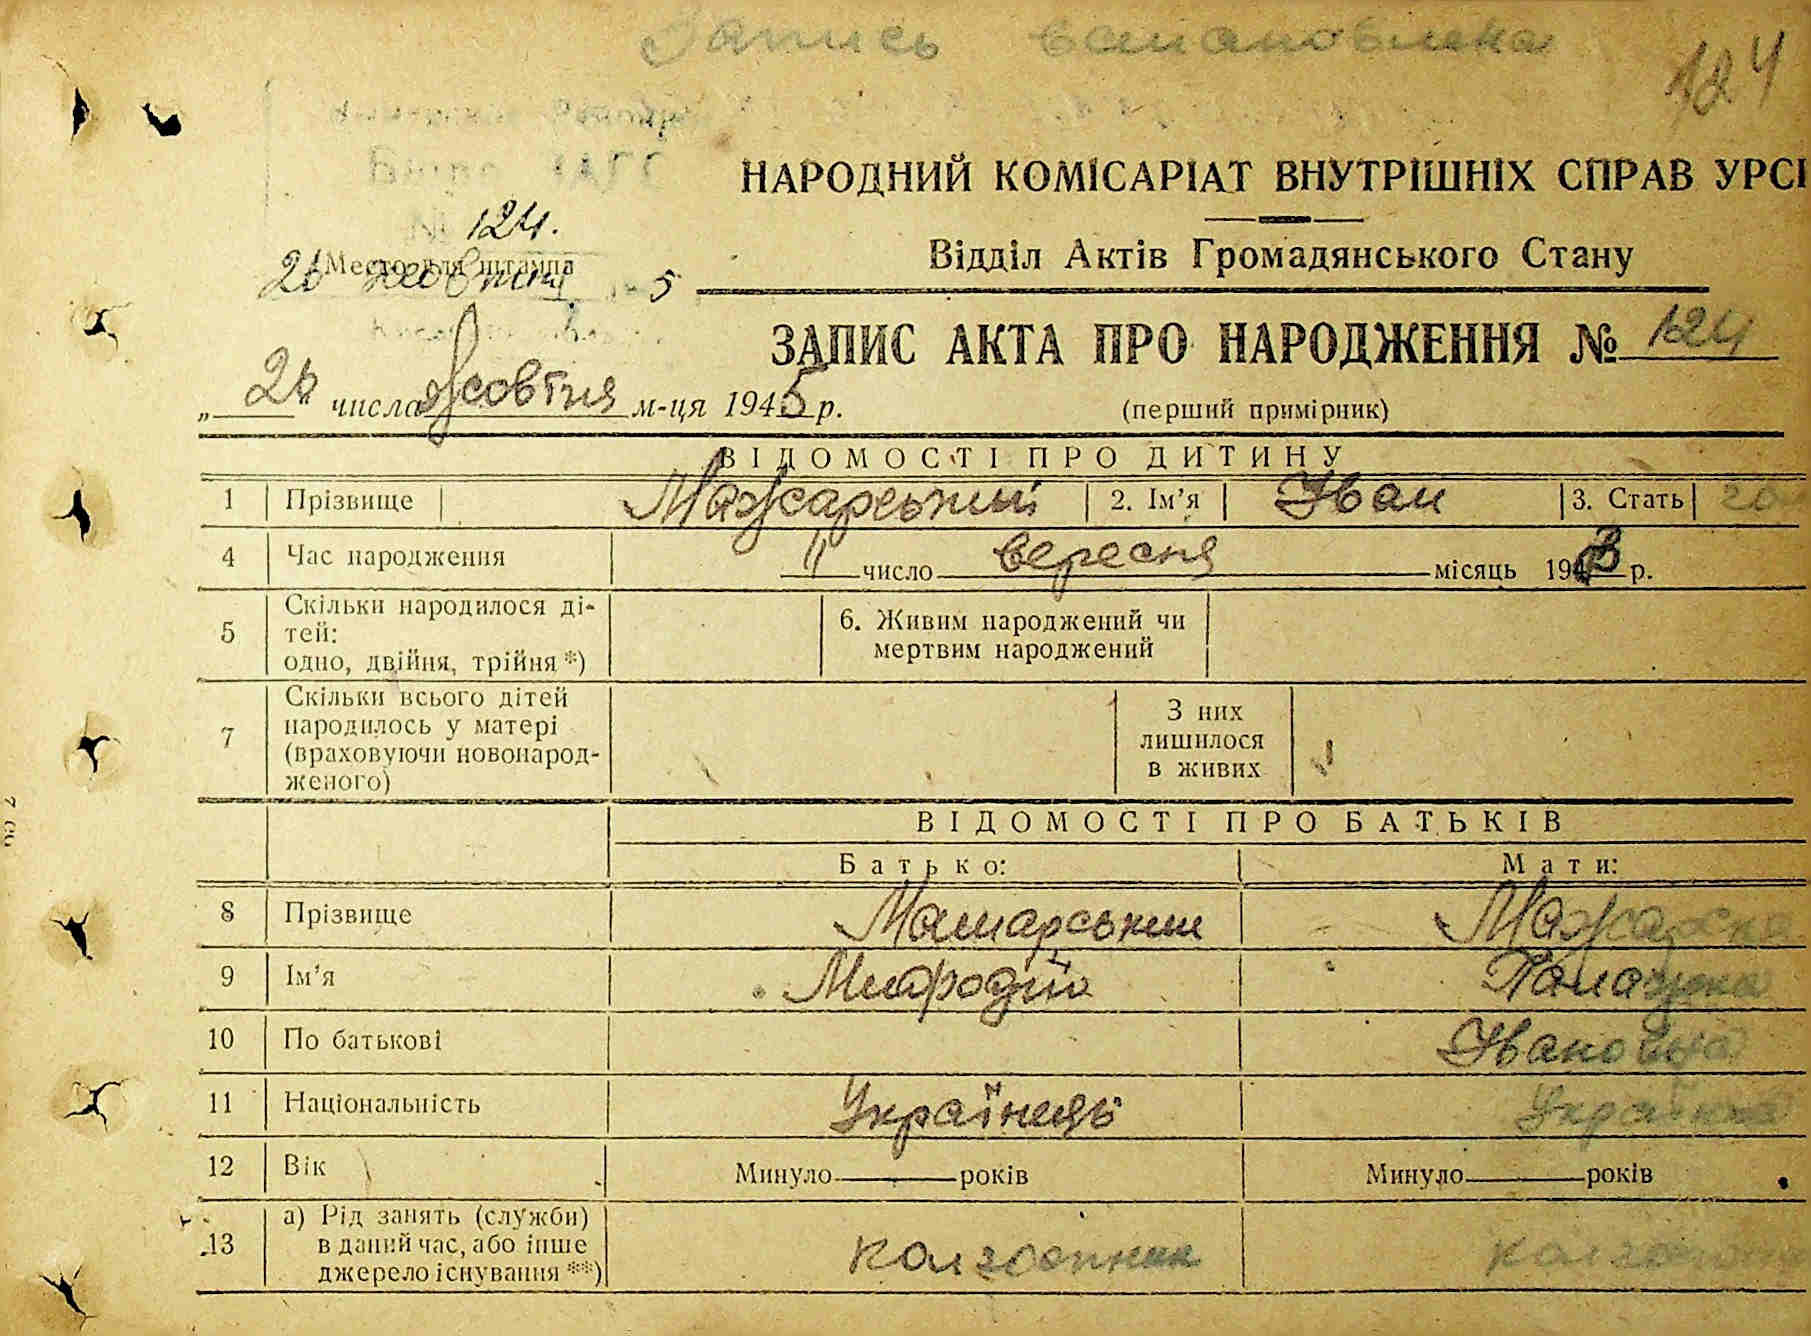 Запись
124
Бюро ЗАГС
№ 124.
Место для штампа
26 жовтня 5
НАРОДНИЙ КОМІСАРІАТ ВНУТРІШНІХ СПРАВ УРСР
Відділ Актів Громадянського Стану
ЗАПИС АКТА ПРО НАРОДЖЕННЯ № 124
„ 26 " числа жовтня м-ця 1945 р.
(перший примірник)
ВІДОМОСТІ ПРО ДИТИНУ
1 Прізвище Мажарський 2. Ім’я Іван 3. Стать
4 Час народження 11 число вересня місяць 1943 р.
5 Скільки народилося ді-
тей:
одно, двійня, трійня *)
6. Живим народжений чи
мертвим народжений
7 Скільки всього дітей
народилось у матері
(враховуючи новонарод-
женого)
З них
лишилося
в живих
ВІДОМОСТІ ПРО БАТЬКІВ
Батько: Мати:
8 Прізвище Мажарський Мажарська
9 Ім’я Палажка
10 По батькові Івановна
11 Національність Українець Українка
12 Вік Минуло років Минуло років
13 а) Рід занять (служби)
в даний час, або інше
джерело існування **)
колгоспник колгоспниця